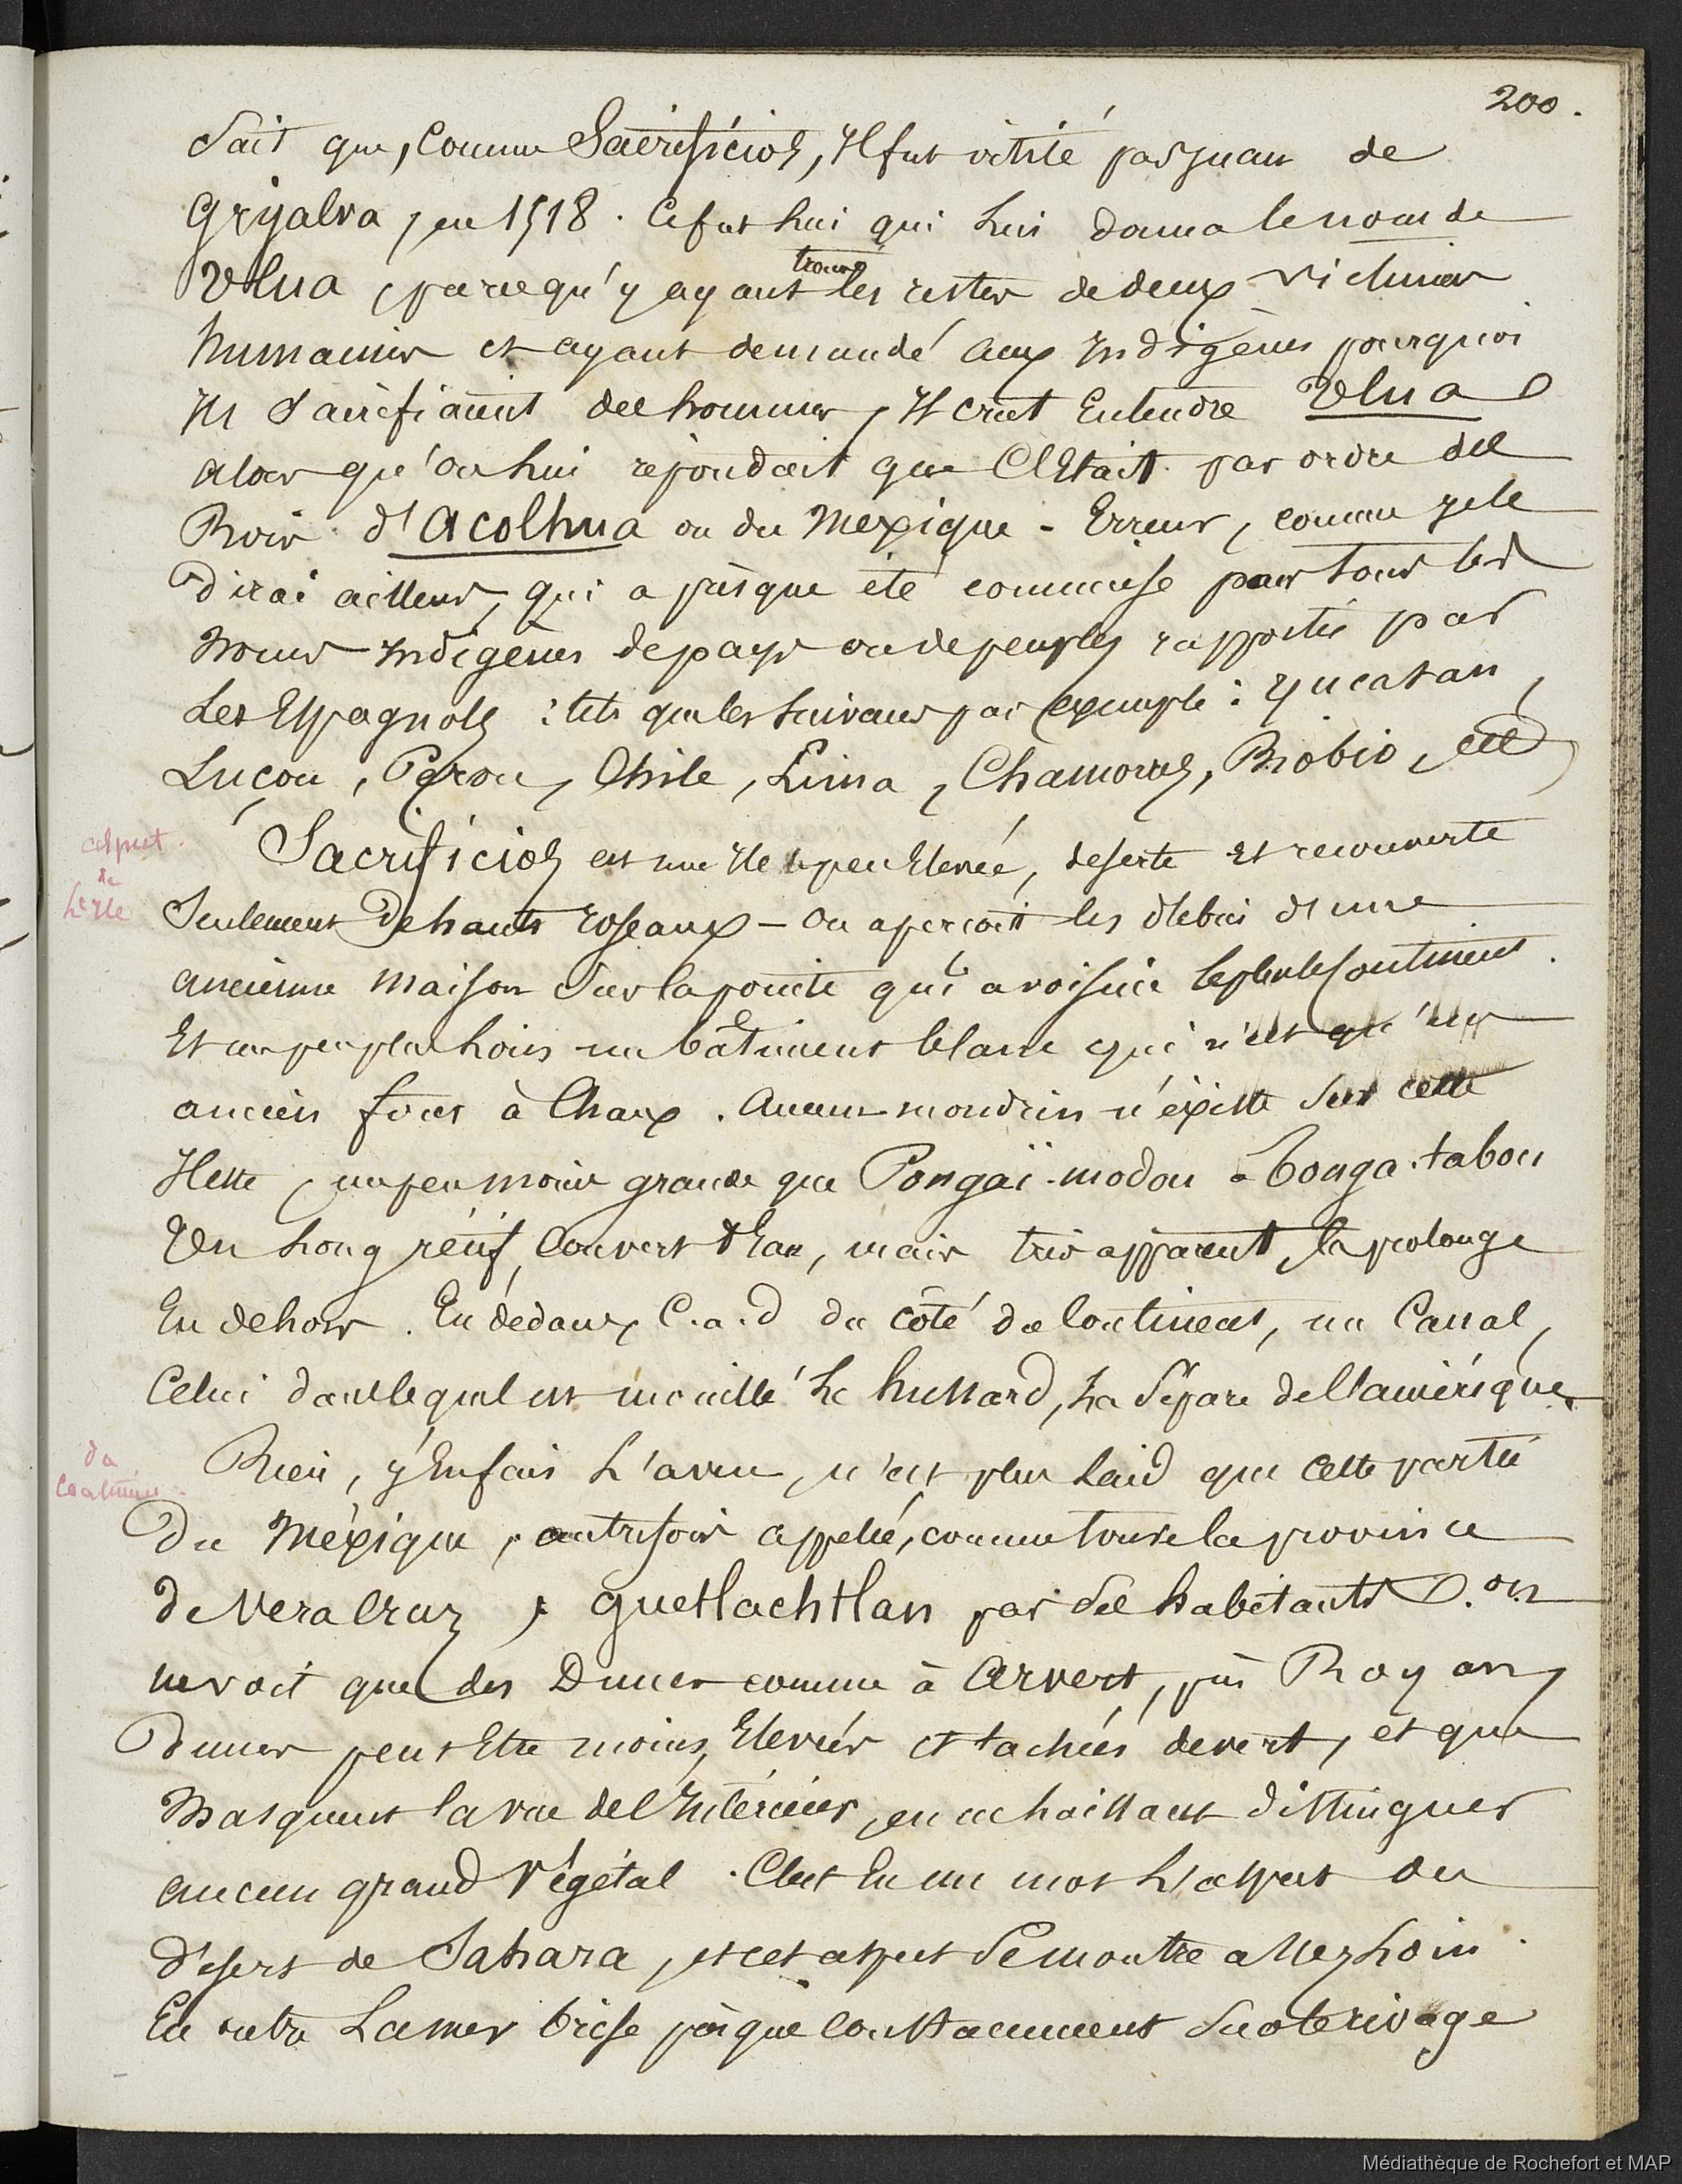 200.
Sait que, comme Sacrificios, Il fut visité par Juan de
Gryalva, en 1518. Ce fut lui qui lui donna le nom de
Ulua, parce qu'y ayant trouvé les restes de deux victimes
humaines et ayant demandé aux Indigènes pourquoi
Ils sacrifiaient des hommes, Il crut Entendre Ulua
alors qu'on lui répondait que C'Etait par ordre des
Rois d'Acolhua ou du Mexique - Erreur, comme je le
dirai ailleurs, qui a présque été commise pour tous les
noms Indigènes de pays ou de peuples rapportés par
Les Espagnols : tels que les suivans par exemple : Yucatan,
Luçon, Pérou, Chile, Lima, Chamorres, Biobio, etc
aspect
de
L'Ile
Sacrificios est une Ile peu Elevée, deserte Et recouverte
Seulement De hauts roseaux - On aperçoit les débris d'une
ancienne maison sur la pointe qui avoisine le plus le Continent.
Et un peu plus loin un bâtiment blanc qui n'est qu'un
ancien four à Chaux. Aucun mondrin n'éxiste sur cette
Ilette, un peu moins grande que Pongaï-modou à Tonga-tabou
Un long récif, Couvert d'Eau, mais très apparent, la prolonge
En dehors. En dédans, C.a.d du côté du Continent, un Canal,
Celui dans lequel est mouillé Le hussard, La Sépare de l'amérique.
du
Continent.
Rien, j'En fais L'aveu, n'est plus laid que cette partie
Du Méxique, autrefois appelée, comme toute la province
de Vera Cruz, guetlachtlan par ses habitants. On
ne voit que des Dunes comme à Arvert, près Royan,
Dunes peut Etre moins, Elevées et tachées de vert, et qui
Masquent la vue de l'Intérieur, en ne laissant distinguer
aucun grand Végétal. C'est En un mot L'aspect du
désert de Sahara, et cet aspect Se montre assez Loin.
En outre La mer brise présque Constamment sur le rivage
Médiathèque de Rochefort et MAP